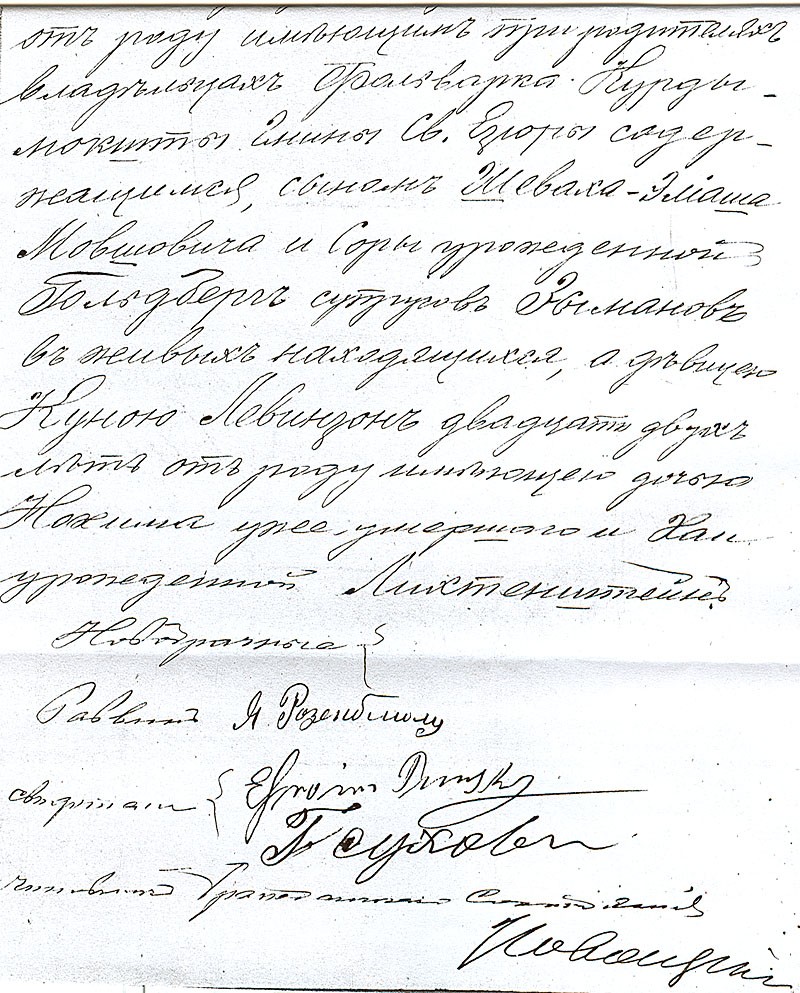 отъ роду имѣющимъ при родителяхъ
владѣльцахъ Фольварка Курды-
мокшты Гмины Св. Езюры содер-
жащимся, сыномъ Шеваха-Эліаша
Мовшовича и Соры урожденной
Гольдбергъ супруговъ Рымановъ
въ живыхъ находящихся, а дѣвицею
Куною Левинзонъ двадцати двухъ
лѣтъ отъ роду имѣющею дочью
Нохима уже умершаго и Хаи
урожденной Лихтенштейнъ
Новобрачные
Раввинъ Я. Розенблюмъ
свидѣтели
Чиновникъ Гражданскаго Состоянія